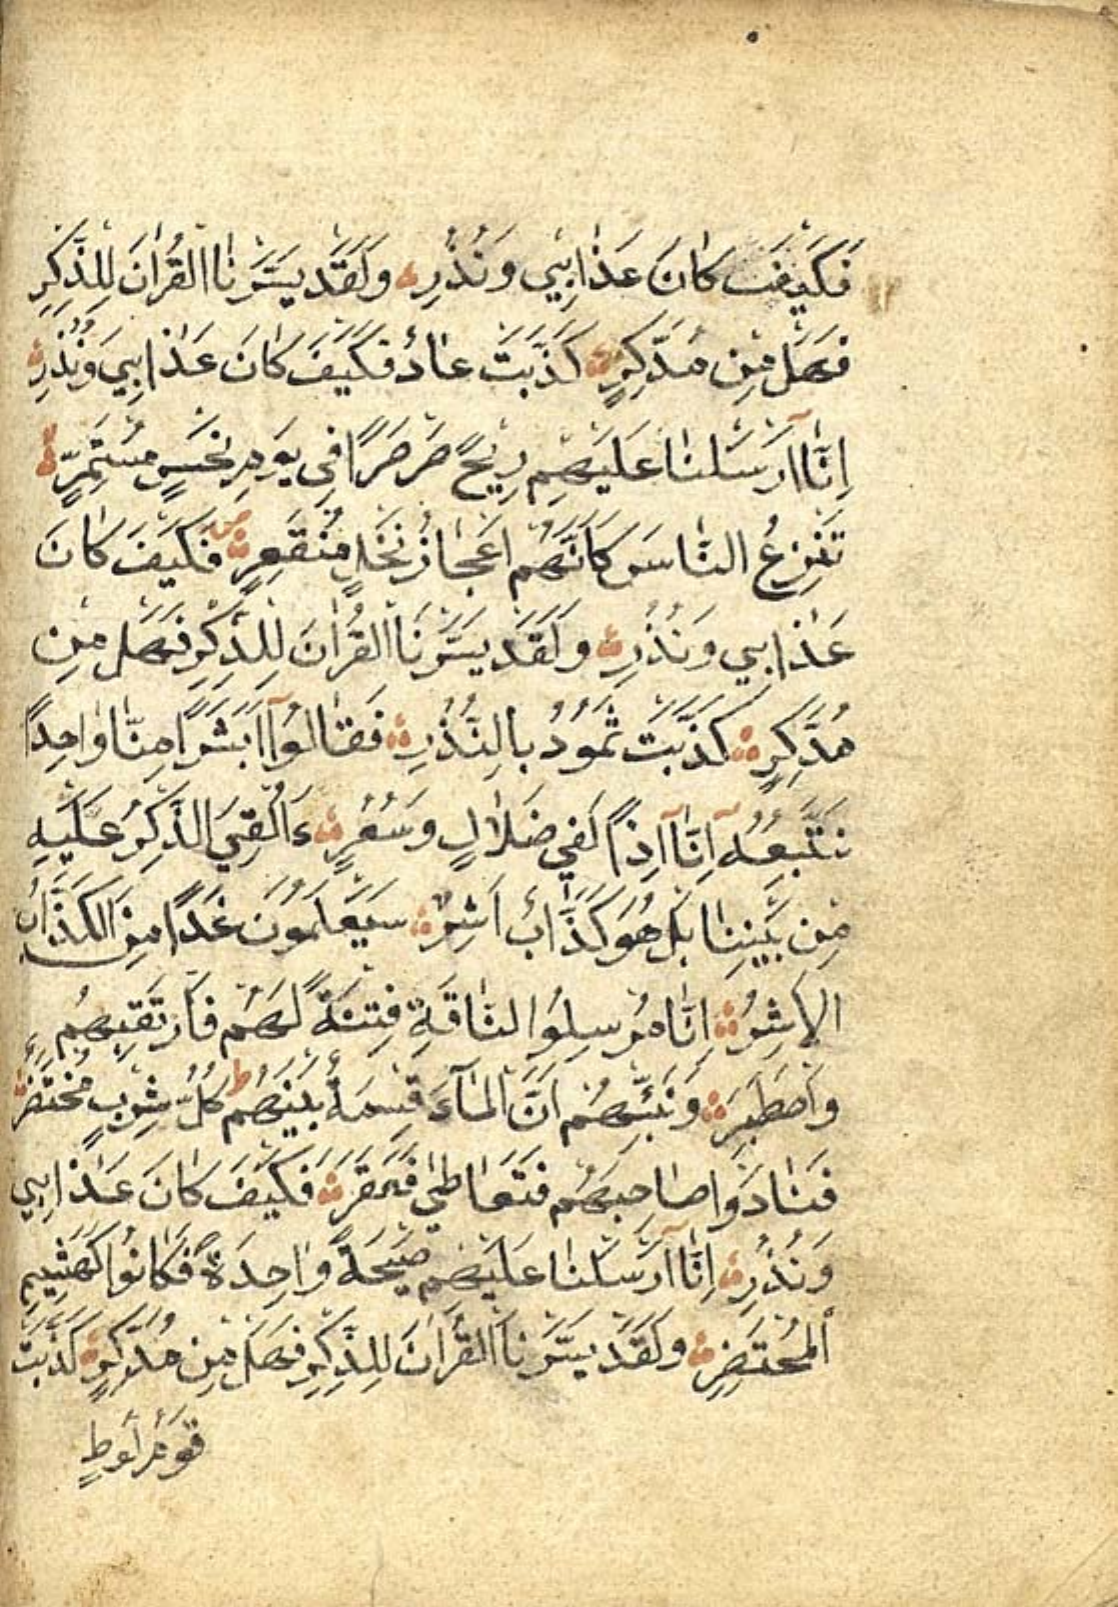 فَكَيْفَ كَانَ عَذَابِي وَنُذُرِ وَلَقَدْ يَسَّرْنَا الْقُرْاٰنَ لِلذِّكْرِ
فَهَلْ مِنْ مُدَّكِرٍ كَذَّبَتْ عَادٌ فَكَيْفَ كَانَ عَذَابِي وَنُذُرِ
اِنَّا اَرْسَلْنَا عَلَيْهِمْ رِيْحًا صَرْصَرًا فِي يَوْمِ نَحْسٍ مُسْتَمِرٍّ لا
تَنْزِعُ النَّاسَ كَاَنَّهُمْ اَعْجَازُ نَخْلٍ مُنْقَعِرٍ فَكَيْفَ كَانَ
عَذَابِي وَنُذُرِ وَلَقَدْ يَسَّرْنَا الْقُرْاٰنَ لِلذِّكْرِ فَهَلْ مِنْ
مُدَّكِرٍ كَذَّبَتْ ثَمُوْدُ بِالنُّذُرِ فَقَالُوْا اَبَشَرًا مِنَّا وَاحِدًا
نَتَّبِعُهُ اِنَّا اِذًا لَفِي ضَلَالٍ وَسُعُرٍ ءَاُلْقِيَ الذِّكْرُ عَلَيْهِ
مِنْ بَيْنِنَا بَلْ هُوَ كَذَّابٌ اَشِرٌ سَيَعْلَمُوْنَ غَدًا مَنِ الْكَذَّابُ
الْاَشِرُ اِنَّا مُرْسِلُوا النَّاقَةِ فِتْنَةً لَهُمْ فَارْتَقِبْهُمْ
وَاصْطَبِرْ وَنَبِّئْهُمْ اَنَّ الْمَآءَ قِسْمَةٌ بَيْنَهُمْ ط كُلُّ شِرْبٍ مُحْتَضَرٌ
فَنَادَوْا صَاحِبَهُمْ فَتَعَاطٰى فَعَقَرَ فَكَيْفَ كَانَ عَذَابِي
وَنُذُرِ اِنَّا اَرْسَلْنَا عَلَيْهِمْ صَيْحَةً وَاحِدَةً فَكَانُوْا كَهَشِيْمِ
الْمُحْتَضِرِ وَلَقَدْ يَسَّرْنَا الْقُرْاٰنَ لِلذِّكْرِ فَهَلْ مِنْ مُدَّكِرٍ كَذَّبَتْ
قَوْمُ لُوْطٍ